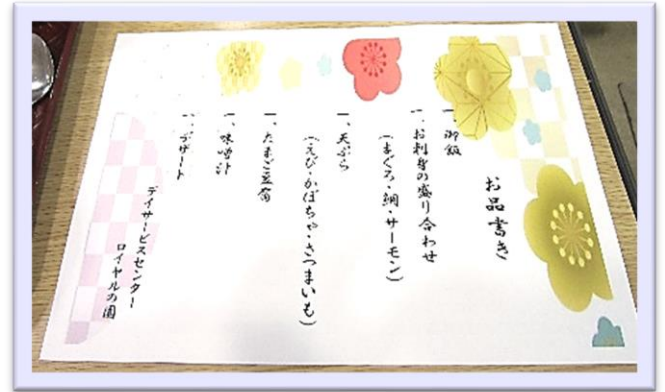 お品書き
一、御飯
一、お刺身の盛り合わせ
(まぐろ・鯛・サーモン)
一、天ぷら
(えび・かぼちゃ・さつまいも)
一、たまご豆腐
一、味噌汁
一、デザート
デイサービスセンター
ロイヤルの園